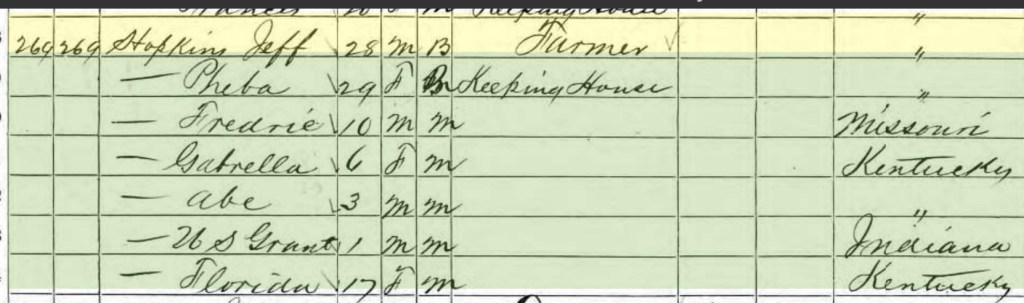 Francis 20 F M Keeping House "
269 269 Hopkins Jeff 28 M B Farmer "
— Pheba 29 F Keeping House "
— Fredric 10 M M Missouri
— Gabrella 6 F M Kentucky
— Abe 3 M M "
— U S Grant 1 M M Indiana
— Florida 17 F M Kentucky